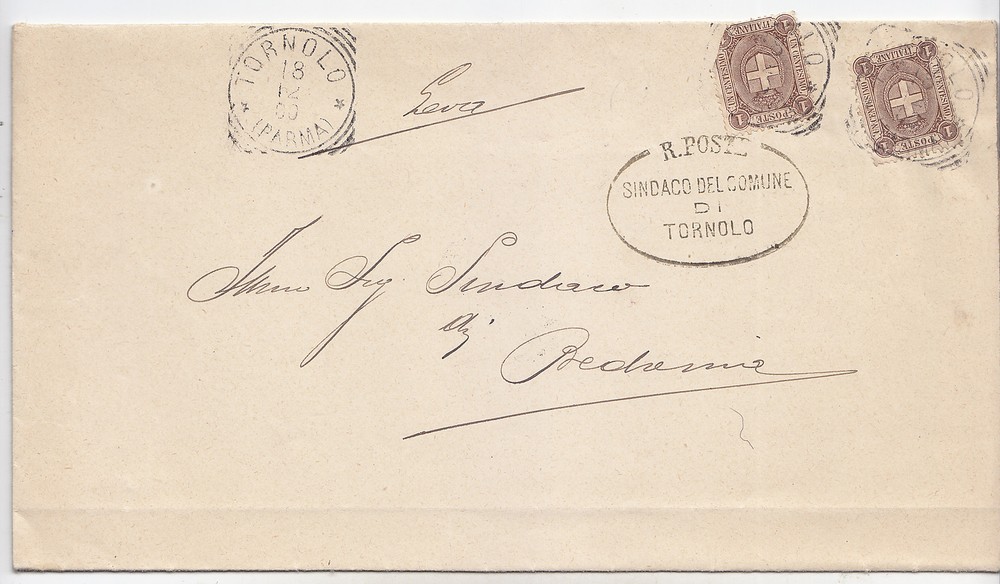 TORNOLO
18
(PARMA)
Leva
POSTE ITALIANE
UN CENTESIMO
1 1 1 1
POSTE ITALIANE
UN CENTESIMO
1 1 1 1
R. POSTE
SINDACO DEL COMUNE
DI
TORNOLO
Sig. Sindaco
di
Bedonia